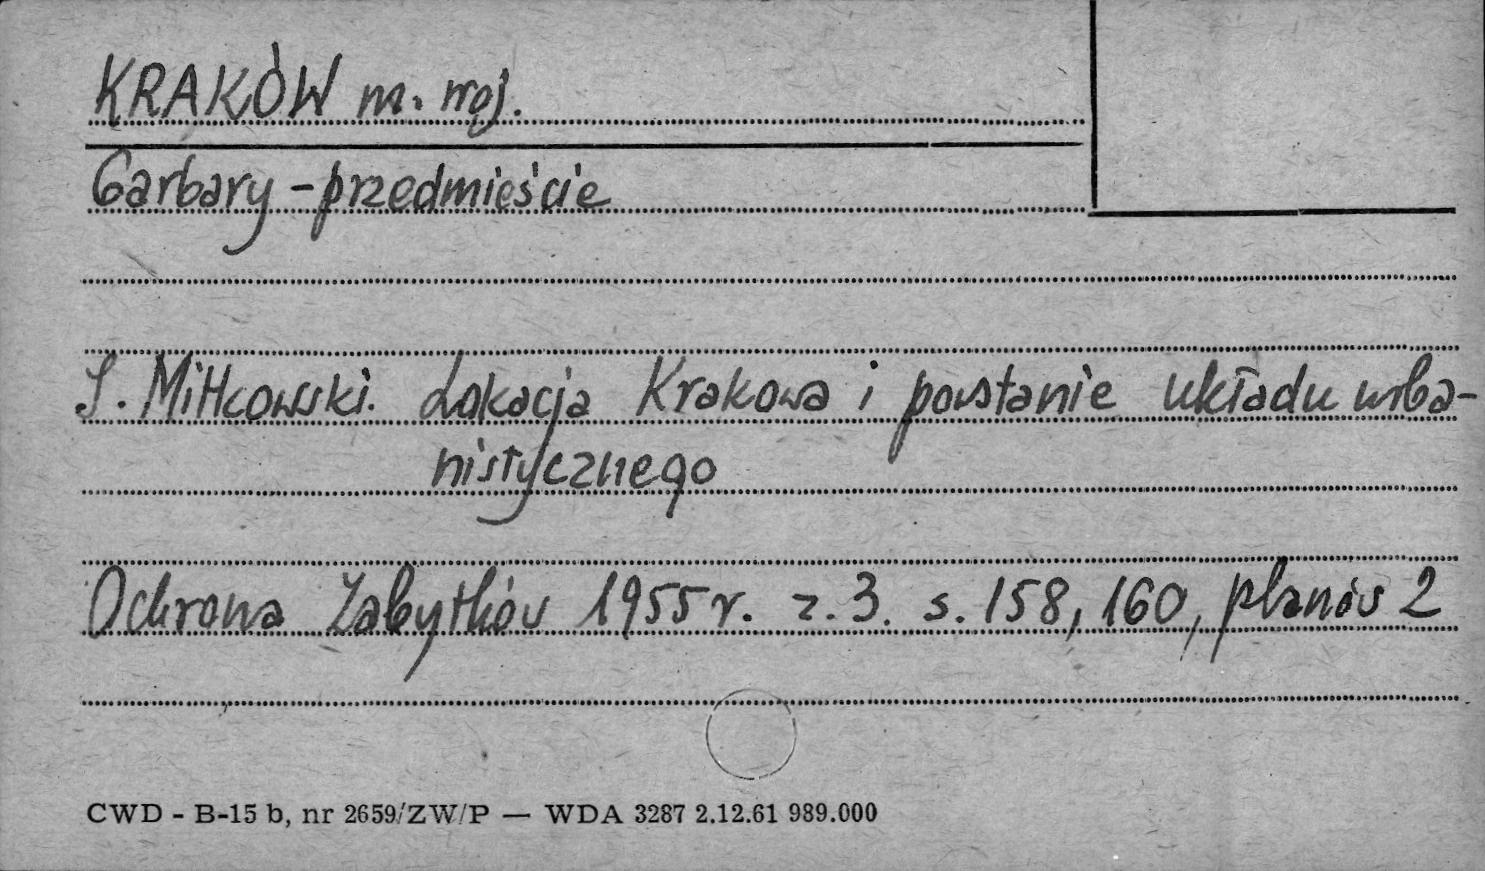 KRAKÓW m. woj.
Garbary - przedmieście
S. Miłkowski. Lokacja Krakowa i powstanie układu urba-
nistycznego
Ochrona Zabytków 1955 r. z. 3. s. 158, 160, planów 2
CWD - B-15 b, nr 2659/ZW/P — WDA 3287 2.12.61 989.000